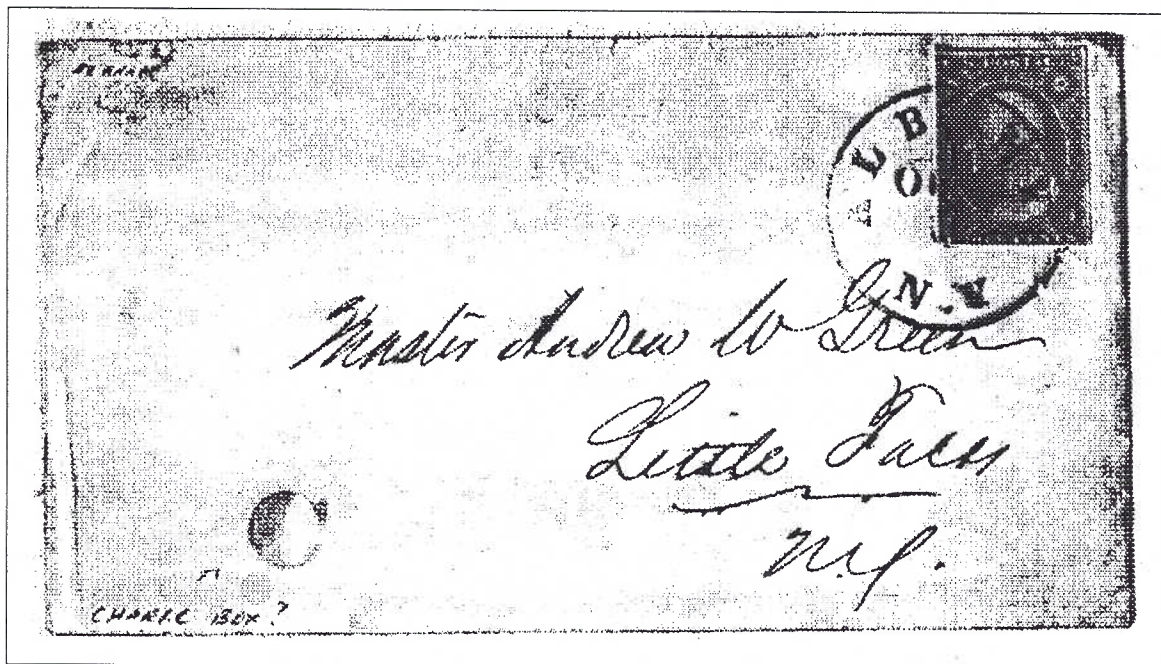 ALB
N.Y.
Master Andrew W Green
Little Falls
N.Y.
CHARGE BOX?